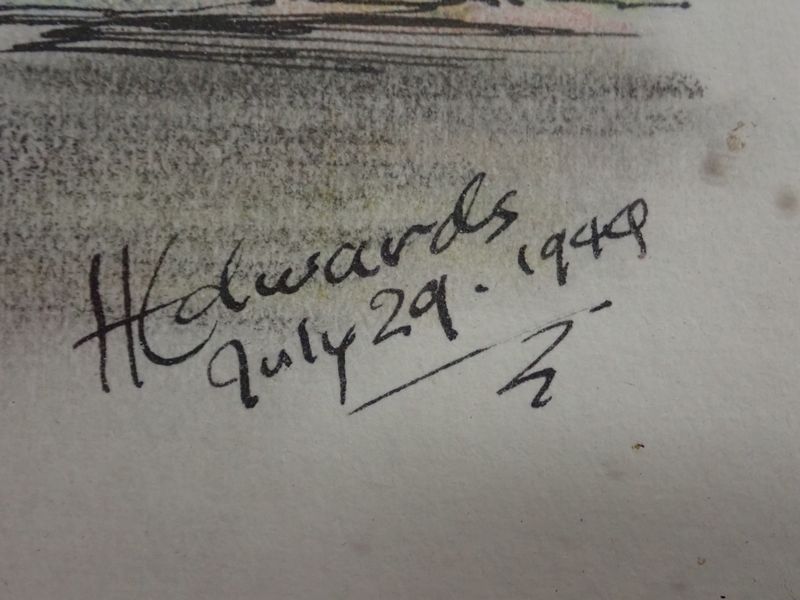 HEdwards
July 29. 1949